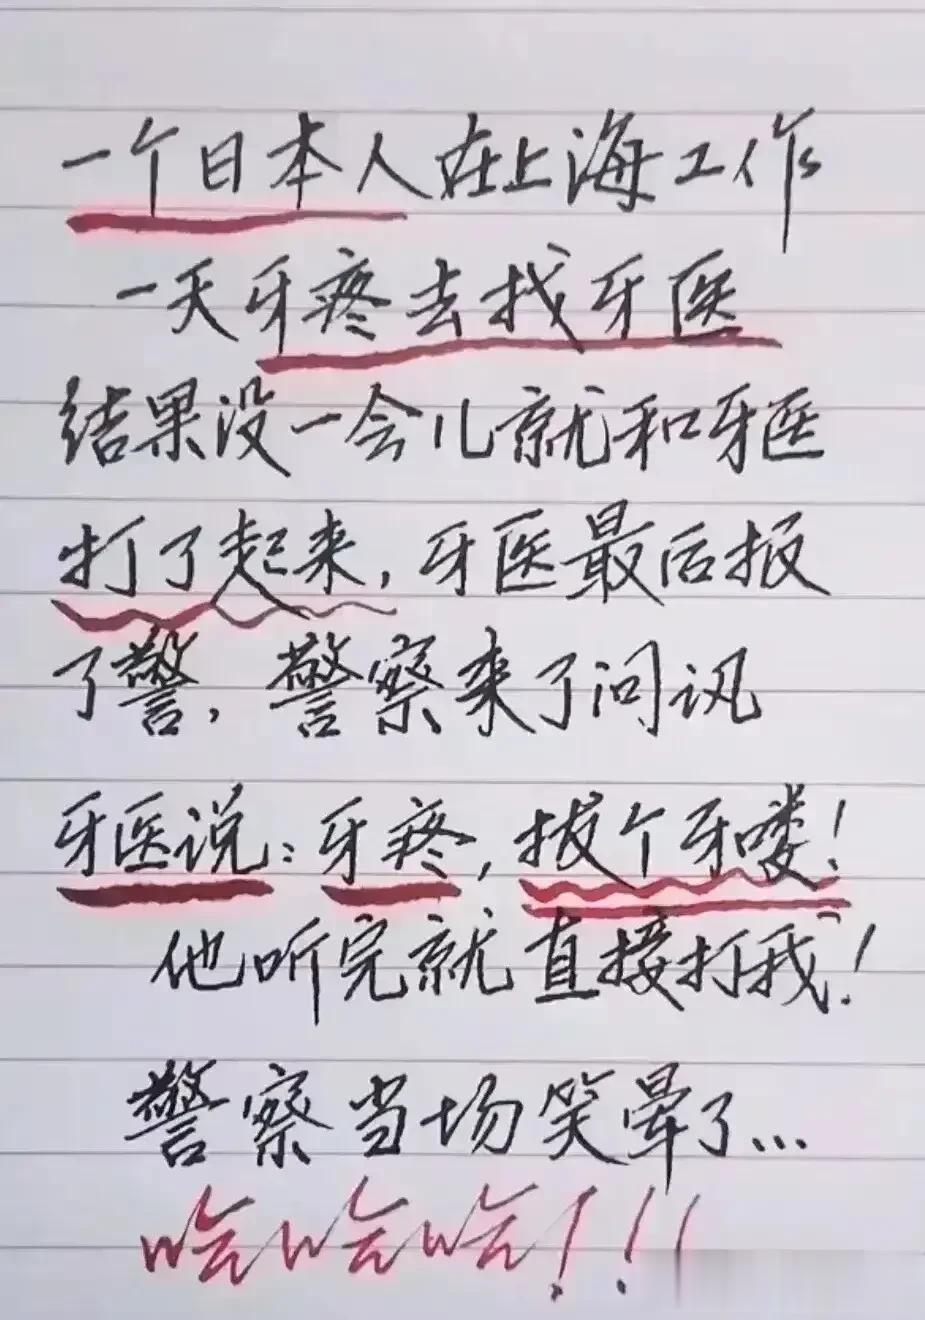 一个日本人在上海工作
一天牙疼去找牙医
结果没一会儿就和牙医
打了起来,牙医最后报
了警,警察来了问讯
牙医说:牙疼,拔个牙喽!
他听完就直接打我!
警察当场笑晕了...
哈哈哈!!!